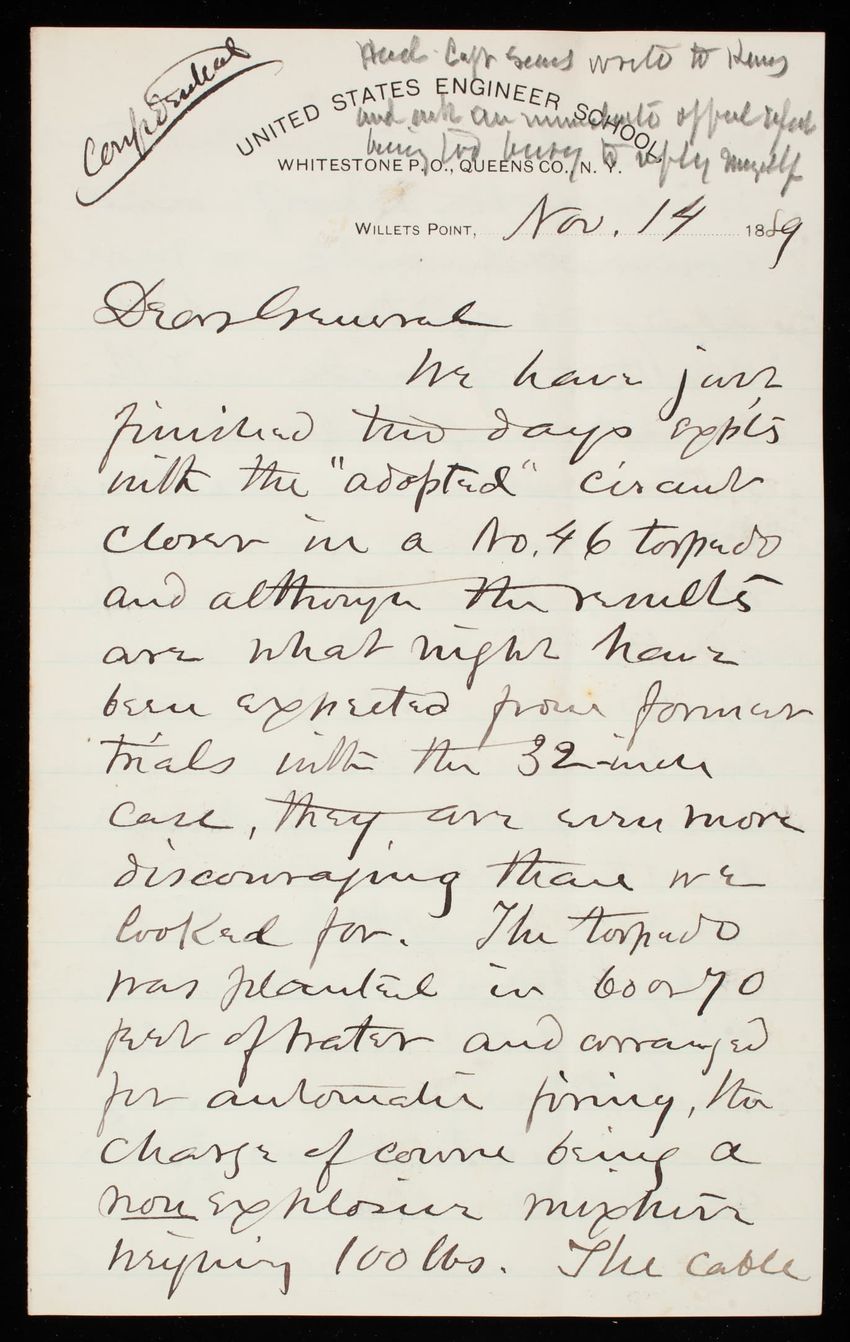 Confidential
Had Capt Sears write to King
and ask an immediate official report
being too busy to reply myself
UNITED STATES ENGINEER SCHOOL,
WHITESTONE P.O., QUEENS CO., N. Y.
WILLETS POINT, Nov. 14 1889
Dear General
We have just
finished two days expts
with the "adopted" circuit
closer in a No. 46 torpedo
and although the results
are what might have
been expected from former
trials with the 32-inch
case, they are even more
discouraging than we
looked for. The torpedo
was planted in 60 or 70
feet of water and arranged
for automatic firing, the
charge of course being a
non explosive mixture
weighing 100 lbs. The cable